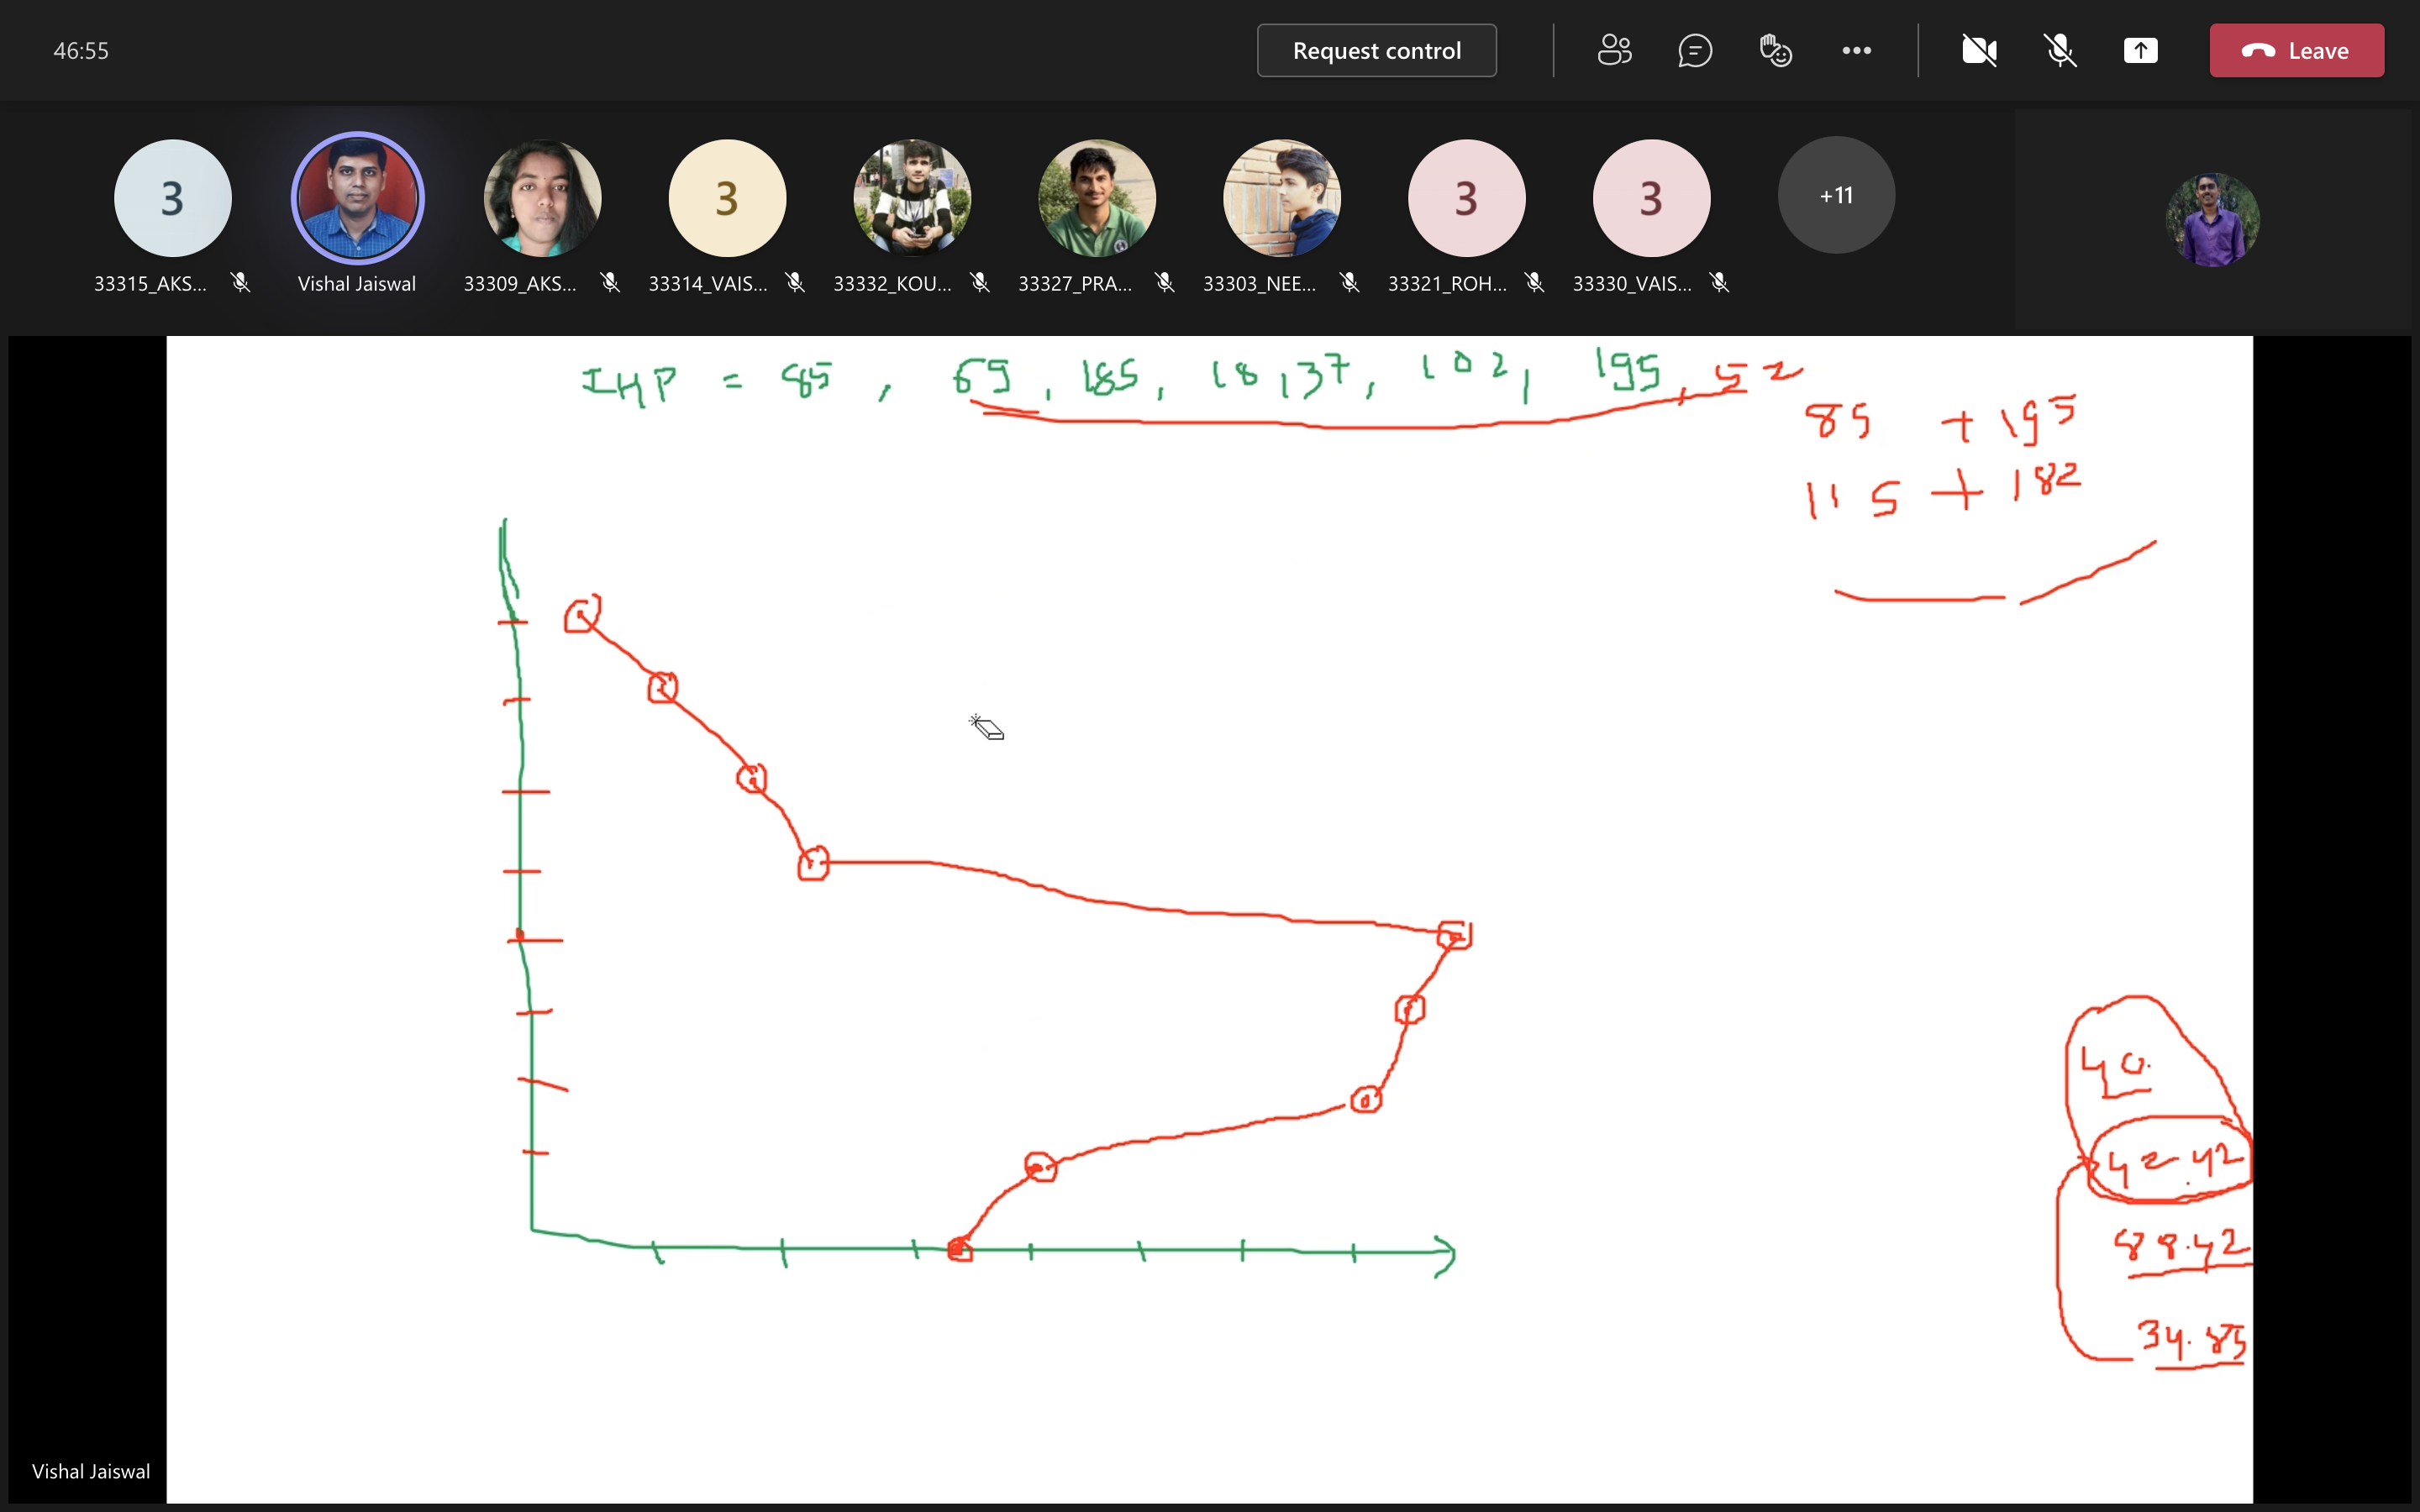 46:55
Request control
Leave
3
3
3
3
+11
33315_AKS...
Vishal Jaiswal
33309_AKS...
33314_VAIS...
33332_KOU...
33327_PRA...
33303_NEE...
33321_ROH...
33330_VAIS...
IHP = 85, 69, 185, 18, 37, 102, 195, 52
85 + 195
115 + 182
40.
42.42
88.42
34.85
Vishal Jaiswal